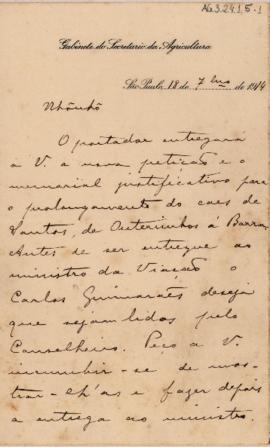 AG3.2.4.1.5-1
Gabinete do Secretario da Agricultura
São Paulo, 18 de 7bro de 1914
Nhônhô
O portador entregará
a V. a nova petição e o
memorial justificativo para
o prolongamento do caes de
Santos, de Outeirinhos á Barra.
Antes de ser entregue ao
ministro da Viação o
Carlos Guimarães deseja
que sejam lidos pelo
Conselheiro. Peço a V.
incumbir-se de mos-
trar-lh'as e fazer depois
a entrega ao ministro.